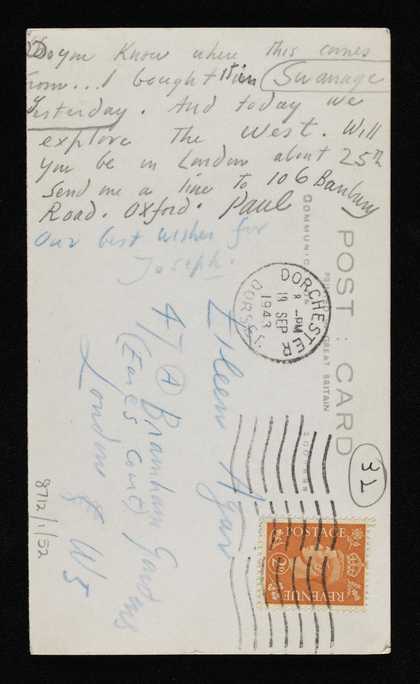 Do you know where this comes
from... I bought it in Swanage
yesterday. And today we
explore the west. Will
you be in London about 25th
Send me a line to 106 Banbury
Road. Oxford. Paul
Our best wishes for
Joseph.
POST CARD
PRINTED GREAT BRITAIN
DORCHESTER
8 - PM
19 SEP
1943
DORSET
Eileen Agar
47 A Bramham Gardens
(Earls Court)
London S W5
32
POSTAGE
2D
REVENUE
8712/1/52